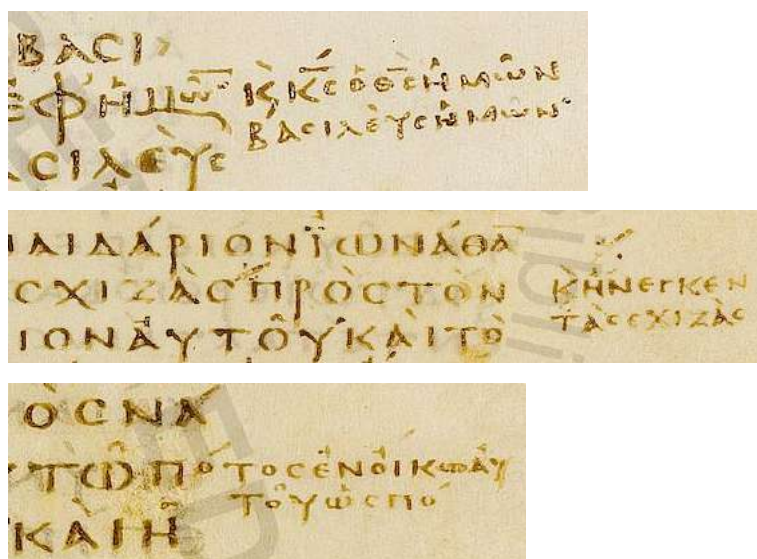 ΒΑϹΙ
ΕΦΗΜΩ̅ Κ̀ Κ̅Ϲ̅ΟΘ̅Ϲ̅ΗΜΩΝ
ΒΑϹΙΛΕΥϹΗΜΩΝ
ΑϹΙΛΕΥϹ
ΑΙΔΑΡΙΟΝΪΩΝΑΘΑ̅
ϹΧΙΖΑϹΠΡΟϹΤΟΝ ΚΗΝΕΓΚΕΝ
ΤΑϹϹΧΙΖΑϹ
ΙΟΝΑΥΤΟΥΚΑΙΤΟ
ΟϹΝΑ
ΤΩΠΟ ΤΟϹΕΝΟΙΚΩΑΥ
ΤΟΥΩϹΠΟ
ΚΑΙΗ